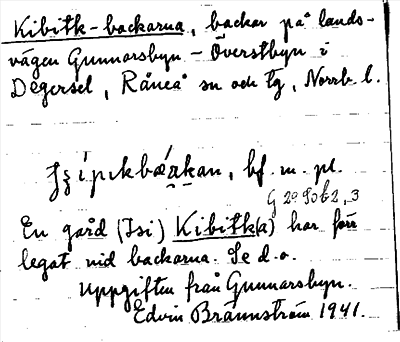 Kibitk-backarna, backar på lands-
vägen Gunnarsbyn - Överstbyn i
Degersel, Råneå sn och tg, Norrb. l.
bf. m. pl.
En gård (Isi) Kibitk(a) har förr
legat vid backarna. Se d.o.
Uppgiften från Gunnarsbyn.
Edvin Brännström 1941.